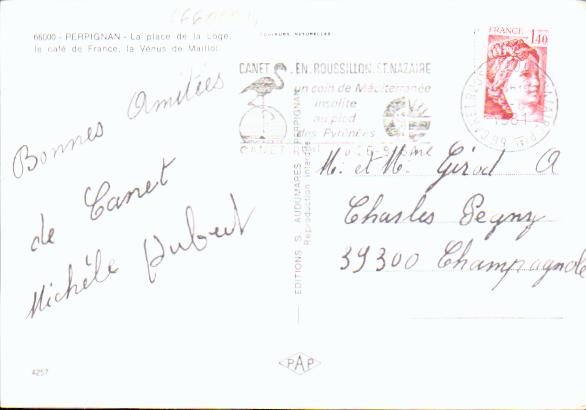 66000 - PERPIGNAN - La place de la Loge,
le café de France, la Vénus de Maillol.
COULEURS NATURELLES
FRANCE
1,40
CANET EN ROUSSILLON ST. NAZAIRE
un coin de Méditerranée
insolite
au pied
des Pyrénées
Bonnes Amitiées
de Canet
Michèle Hubert
EDITIONS S. AUDUMARES - PERPIGNAN
Reproduction interdite
M. et M. Girod A
Charles Peguy
39300 Champagnole
4257
PAP